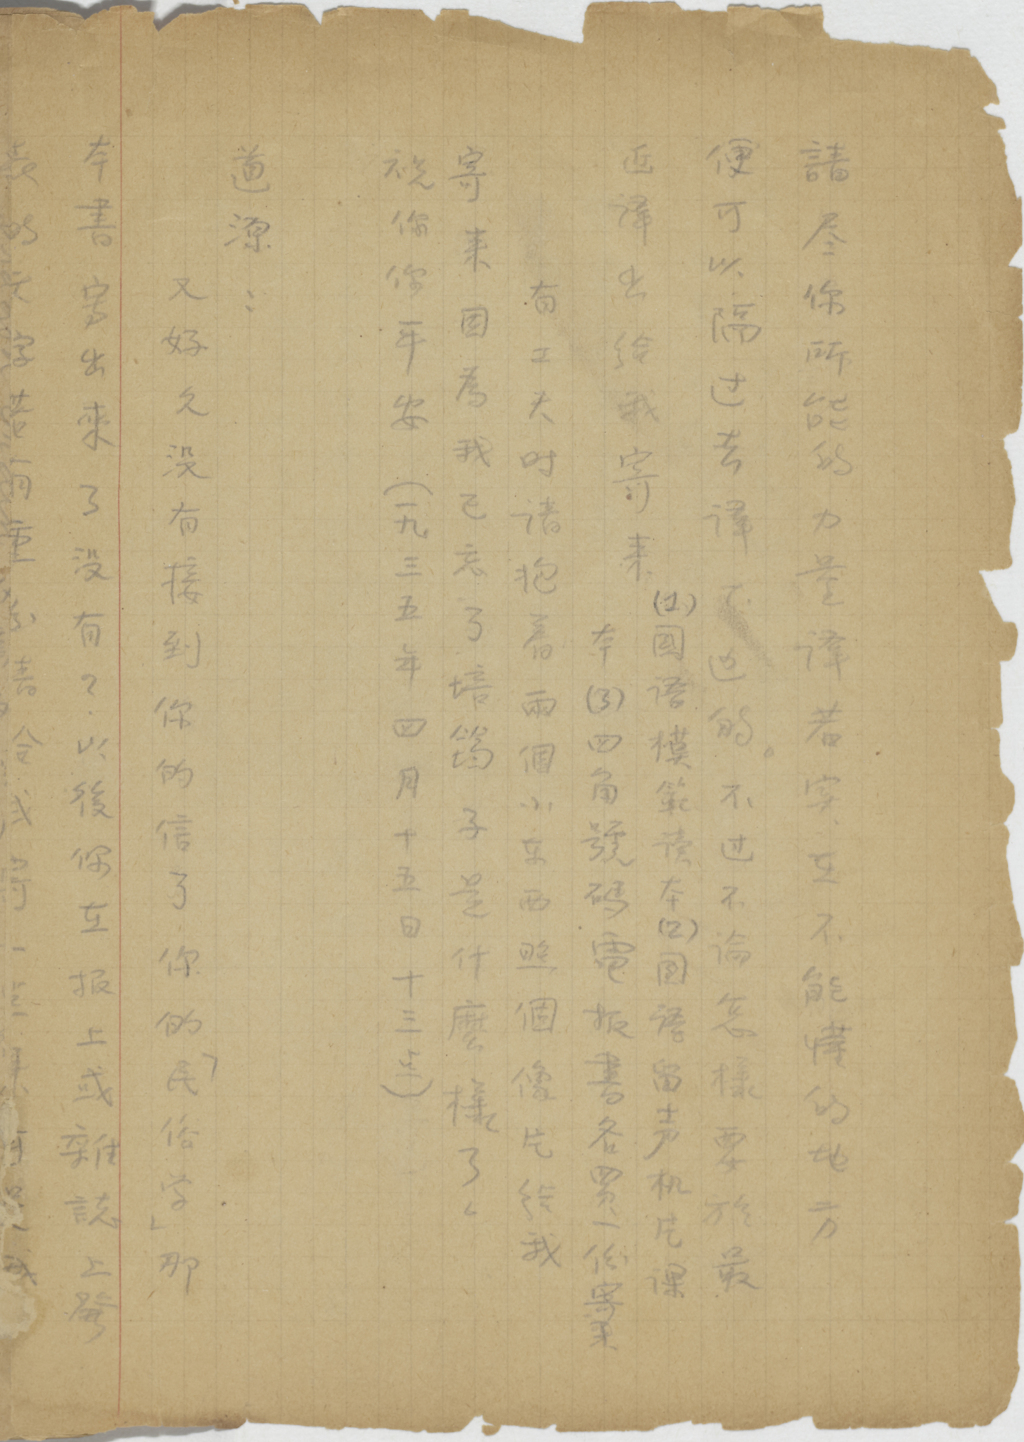 請尽你所能的力量譯若实在不能懂的地方
便可以隔过去譯不过的。不过不論怎樣要於最
近譯出給我寄来
(1)國語模範读本(2)國語留声机片课
本(3)四角號碼電报書各買一份寄来
有工夫时请抱着兩個小东西照個像片给我
寄来因為我已忘了培筠子是什麼樣了。
祝你你平安(一九三五年四月十五日十三点)
道源:
又好久没有接到你的信了你的「民俗学」那
本書寫出來了没有?以後你在报上或雜誌上發
表的文字若有重份請全或寄一些来